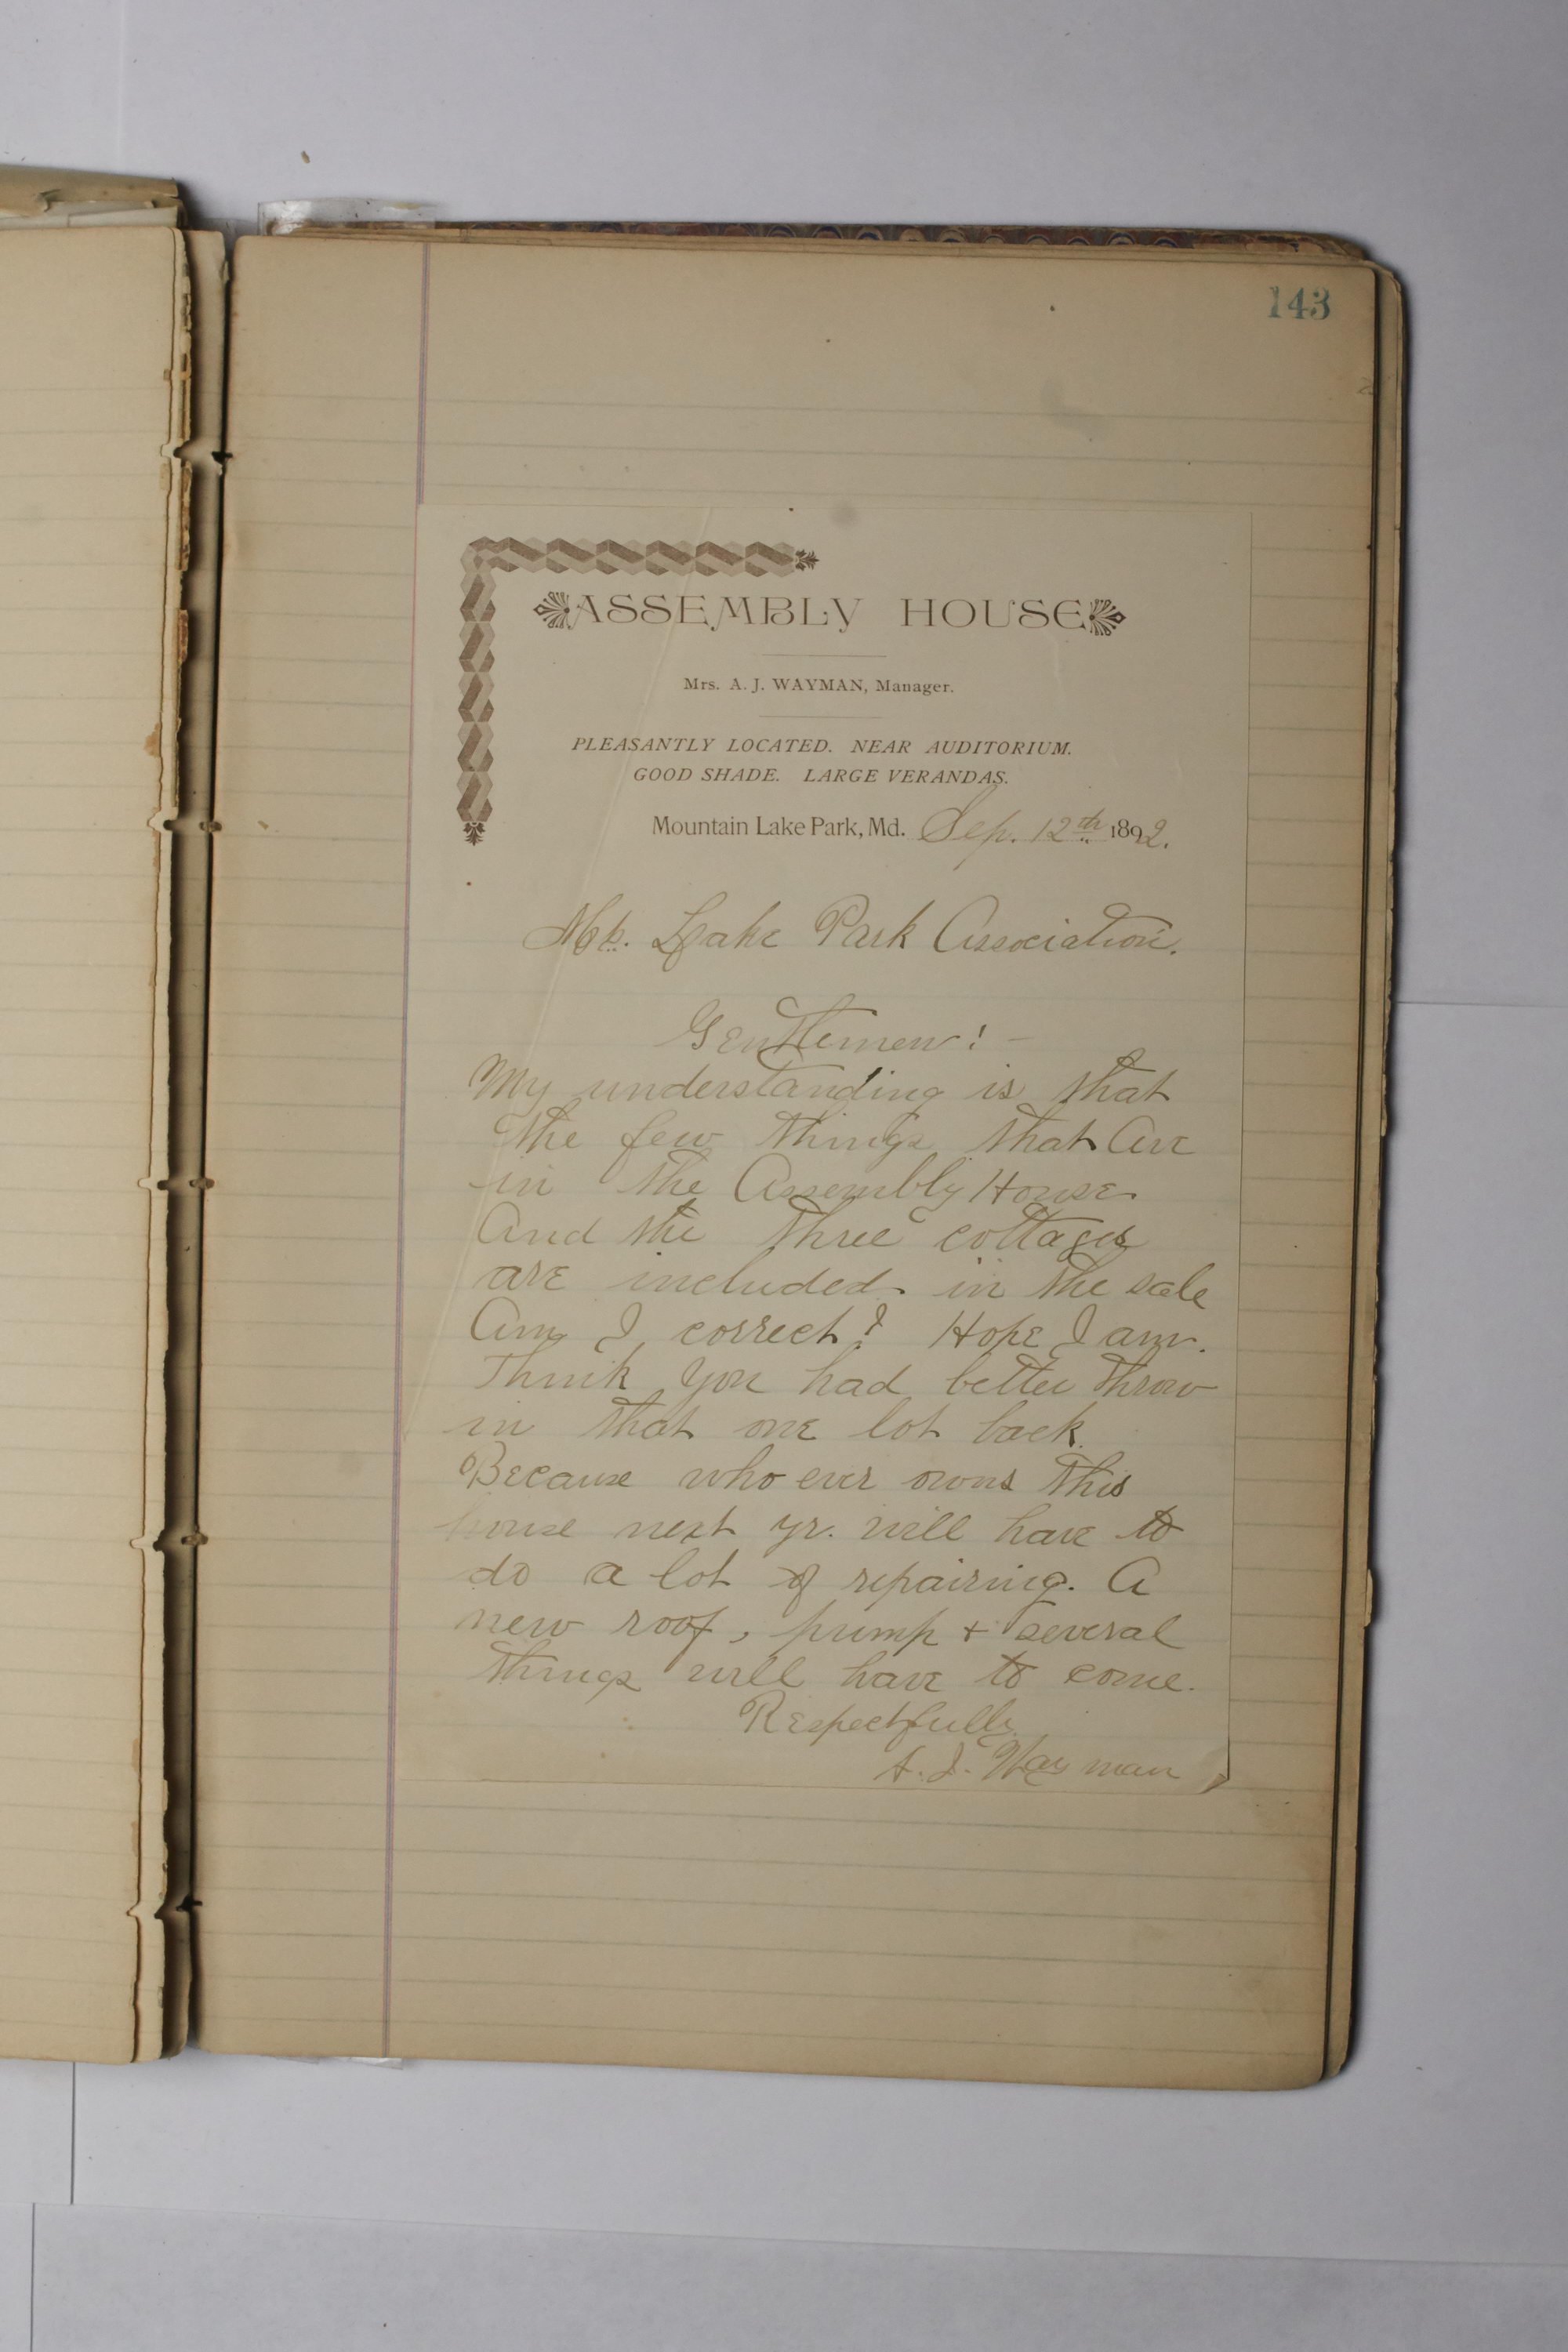 143
ASSEMBLY HOUSE
Mrs. A. J. WAYMAN, Manager.
PLEASANTLY LOCATED. NEAR AUDITORIUM.
GOOD SHADE. LARGE VERANDAS.
Mountain Lake Park, Md. Sep. 12th 1892.
Mt. Lake Park Association.
Gentlemen! -
My understanding is that
the few things that are
in the Assembly House
And the three cottages
are included in the sale
Am I correct? Hope I am.
Think you had better throw
in that one lot back.
Because who ever owns this
house next yr. will have to
do a lot of repairing. A
new roof, pump + several
things will have to come.
Respectfully
A. J. Wayman